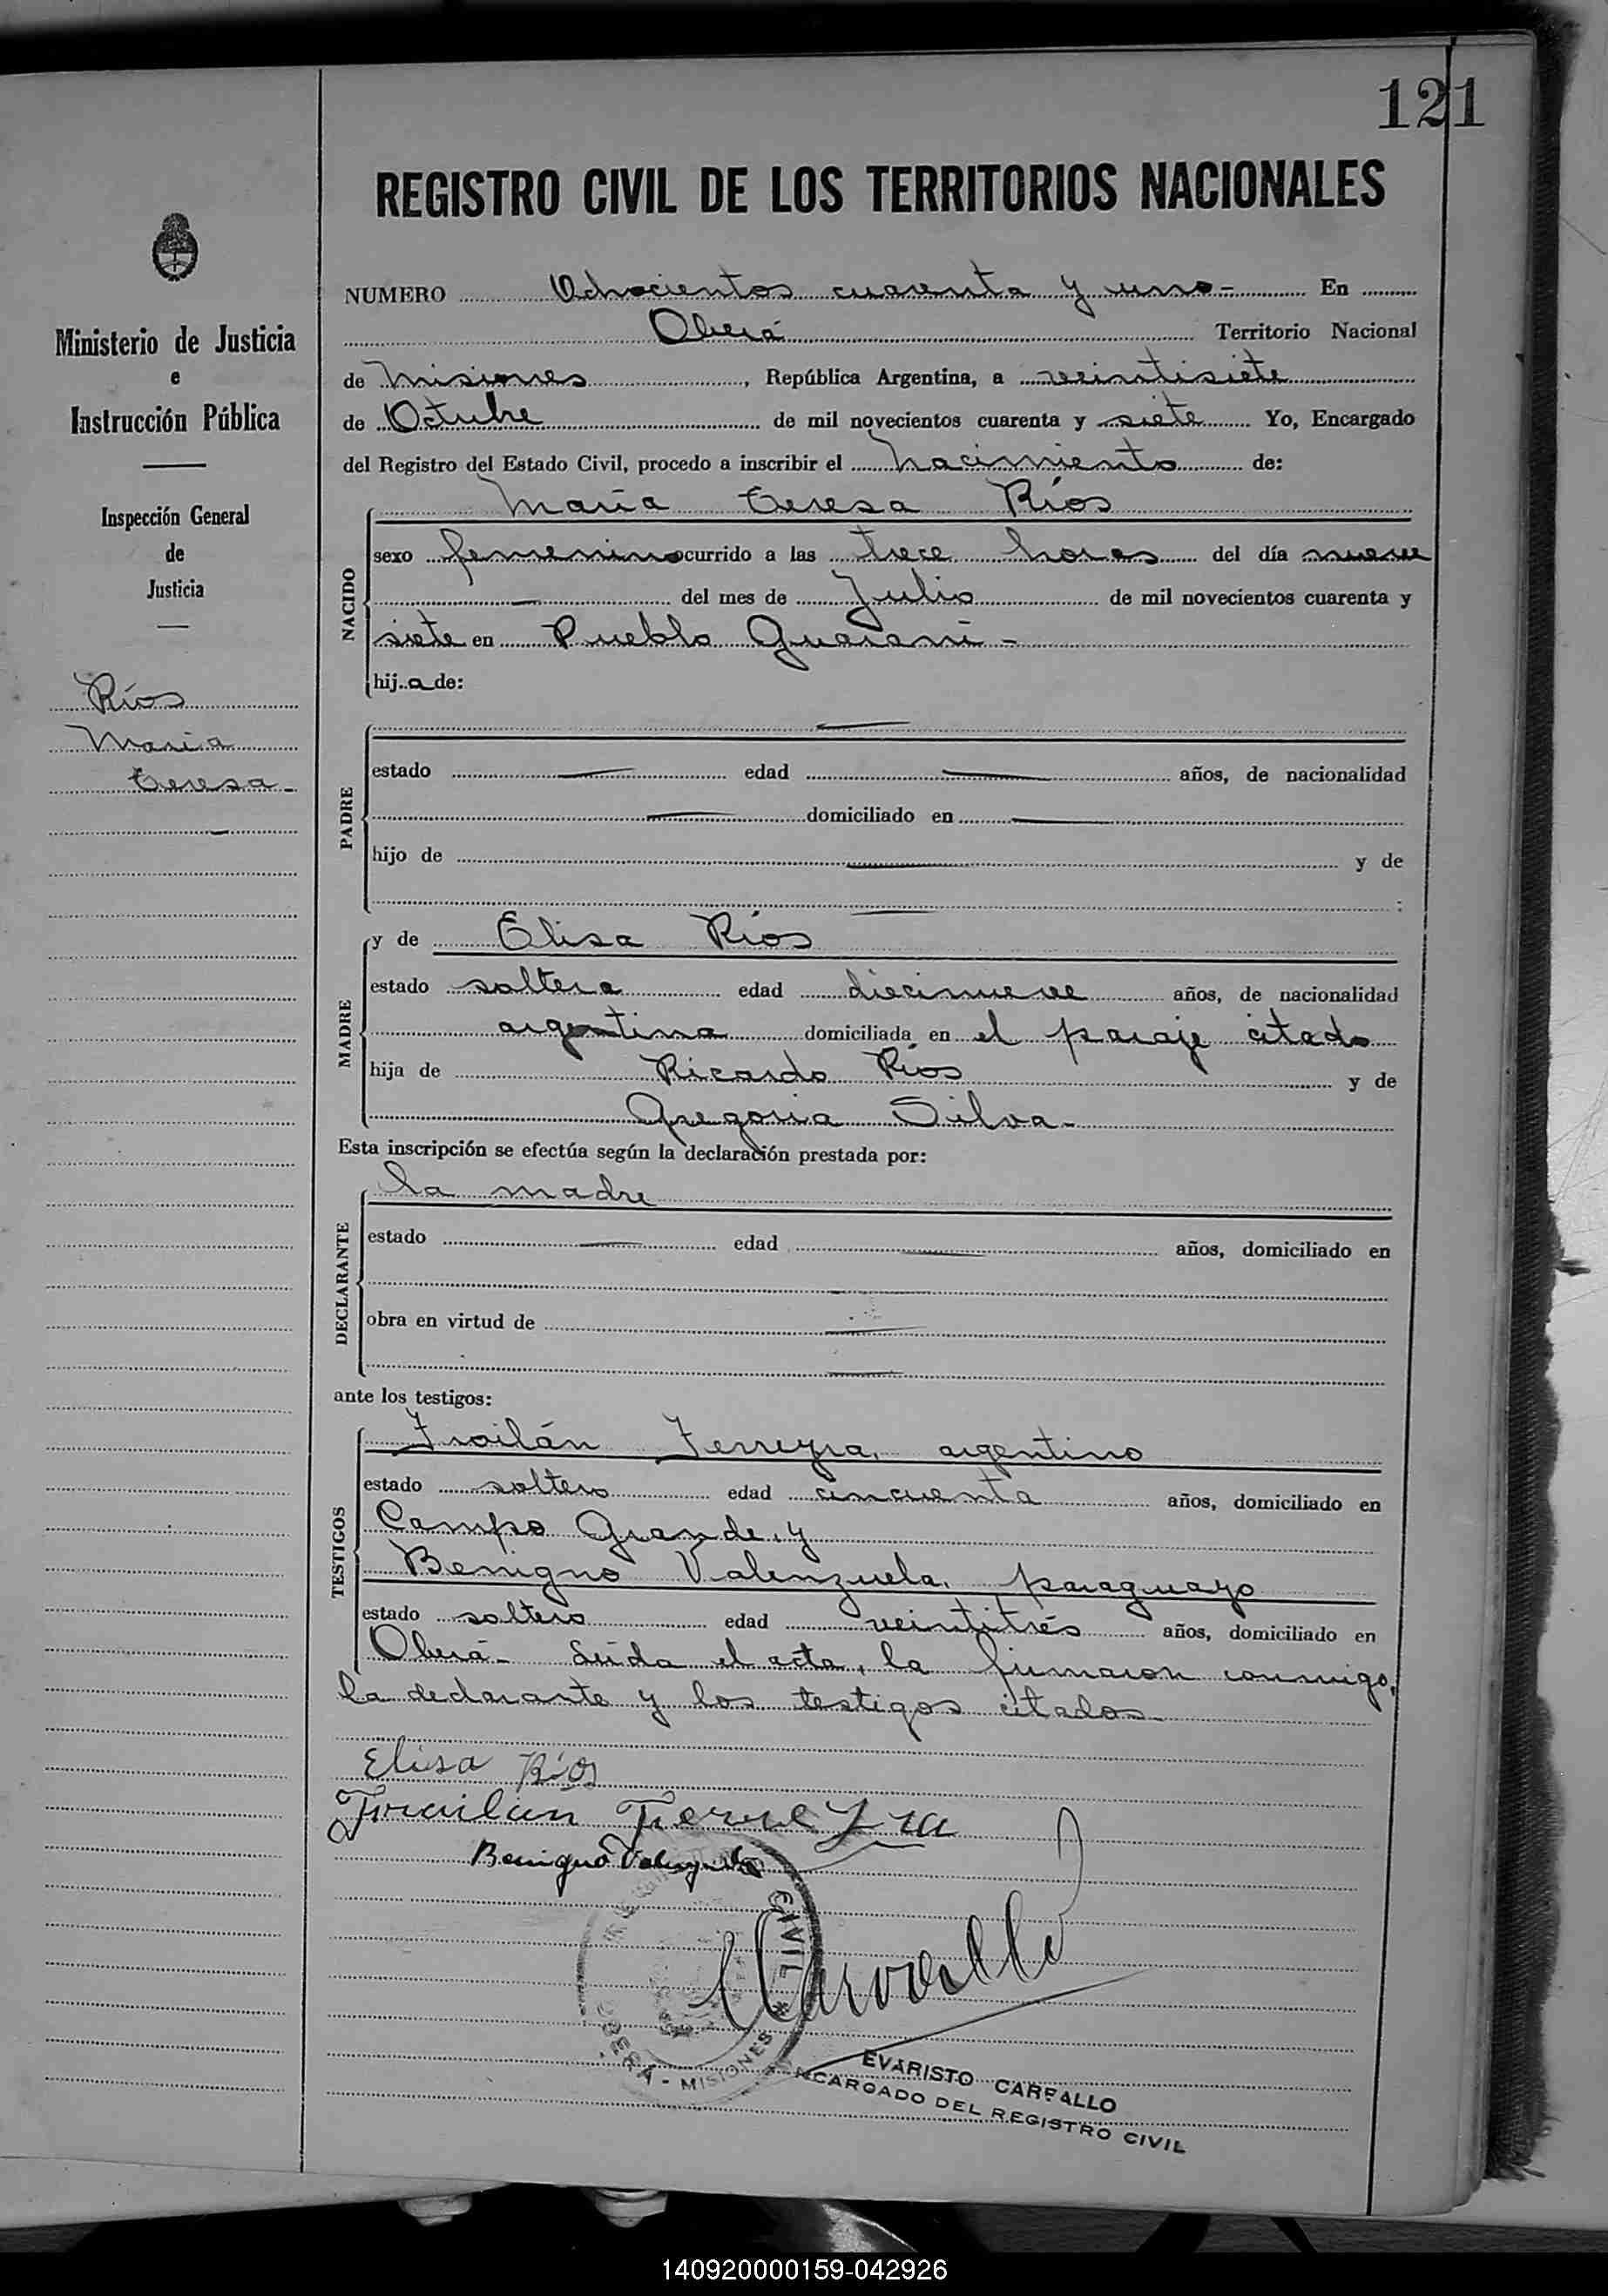 121
REGISTRO CIVIL DE LOS TERRITORIOS NACIONALES
Ministerio de Justicia
e
Instrucción Pública
Inspección General
de
Justicia
Ríos
Maria
Teresa-
NUMERO Ochocientos cuarenta y uno- En
Oberá Territorio Nacional
de Misiones, República Argentina, a veintisiete
de Octubre de mil novecientos cuarenta y siete Yo, Encargado
del Registro del Estado Civil, procedo a inscribir el nacimiento de:
María Teresa Ríos
NACIDO
sexo femenino ocurrido a las trece horas del día nueve
— del mes de Julio de mil novecientos cuarenta y
siete en Pueblo Guarani-
hija de:
PADRE
—
estado — edad — años, de nacionalidad
— domiciliado en —
hijo de — y de
— :
MADRE
y de Elisa Ríos
estado soltera edad diecinueve años, de nacionalidad
argentina domiciliada en el paraje citado
hija de Ricardo Ríos y de
Gregoria Silva-
Esta inscripción se efectúa según la declaración prestada por:
DECLARANTE
la madre
estado — edad — años, domiciliado en
—
obra en virtud de —
—
ante los testigos:
TESTIGOS
Froilán Ferreyra, argentino
estado soltero edad cincuenta años, domiciliado en
Campo Grande, y
Benigno Valenzuela, paraguayo
estado soltero edad veintitrés años, domiciliado en
Oberá- Leída el acta, la firmaron conmigo,
la declarante y los testigos citados-
Elisa Ríos
Froilan Ferreyra
Benigno Valenzuela
CIVIL
OBERÁ - MISIONES
Carvallo
EVARISTO CARVALLO
ENCARGADO DEL REGISTRO CIVIL
140920000159-042926